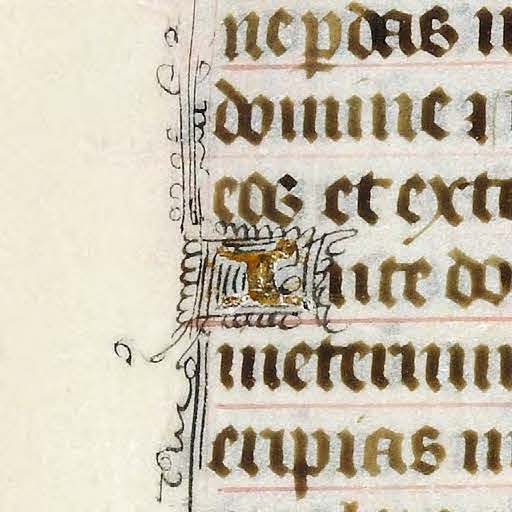 ne pdas
domine
eos et exto
Inte do
ineternum
eripias